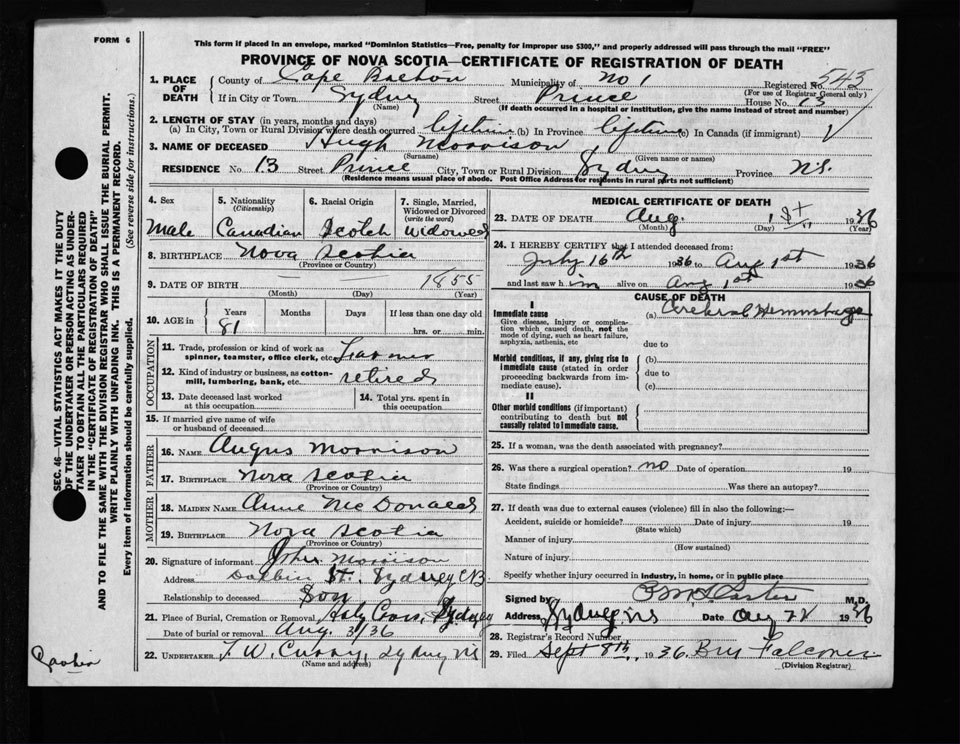 FORM 6
This form if placed in an envelope, marked "Dominion Statistics—Free, penalty for improper use $300," and properly addressed will pass through the mail "FREE"
PROVINCE OF NOVA SCOTIA—CERTIFICATE OF REGISTRATION OF DEATH
1. PLACE OF DEATH County of Cape Breton Municipality of No 1 Registered No. 543
(For use of Registrar General only)
If in City or Town Sydney Street Prince House No. 13
(Name) (If death occurred in a hospital or institution, give the name instead of street and number)
2. LENGTH OF STAY (in years, months and days)
(a) In City, Town or Rural Division where death occurred lifetime (b) In Province lifetime (c) In Canada (if immigrant)
3. NAME OF DECEASED Hugh Morrison
(Surname) (Given name or names)
RESIDENCE No. 13 Street Prince City, Town or Rural Division Sydney Province N.S.
(Residence means usual place of abode. Post Office Address for residents in rural parts not sufficient)
4. Sex Male
5. Nationality (Citizenship) Canadian
6. Racial Origin Scotch
7. Single, Married, Widowed or Divorced (write the word) Widowed
8. BIRTHPLACE Nova Scotia
(Province or Country)
9. DATE OF BIRTH 1855
(Month) (Day) (Year)
10. AGE in Years Months Days If less than one day
81 hrs. or min.
OCCUPATION
11. Trade, profession or kind of work as spinner, teamster, office clerk, etc. Farmer
12. Kind of industry or business, as cotton-mill, lumbering, bank, etc. retired
13. Date deceased last worked at this occupation
14. Total yrs. spent in this occupation
15. If married give name of wife or husband of deceased
FATHER
16. NAME Angus Morrison
17. BIRTHPLACE Nova Scotia
(Province or Country)
MOTHER
18. MAIDEN NAME Anne McDonald
19. BIRTHPLACE Nova Scotia
(Province or Country)
20. Signature of informant John Morrison
Address St. Sydney CB
Relationship to deceased Son
21. Place of Burial, Cremation or Removal Holy Cross, Sydney
Date of burial or removal Aug. 3/36
22. UNDERTAKER T. W. Curry, Sydney NS
(Name and address)
MEDICAL CERTIFICATE OF DEATH
23. DATE OF DEATH Aug. 1st 1936
(Month) (Day) (Year)
24. I HEREBY CERTIFY that I attended deceased from:
July 16th 1936 to Aug 1st 1936
and last saw him alive on Aug 1st 1936
CAUSE OF DEATH
I
Immediate cause (a) Cerebral Hemmorhage
Give disease, injury or complication which caused death, not the mode of dying, such as heart failure, asphyxia, asthenia, etc
due to
Morbid conditions, if any, giving rise to immediate cause (stated in order proceeding backwards from immediate cause).
(b)
due to
(c)
II
Other morbid conditions (if important) contributing to death but not causally related to immediate cause.
25. If a woman, was the death associated with pregnancy?
26. Was there a surgical operation? no Date of operation 19
State findings Was there an autopsy?
27. If death was due to external causes (violence) fill in also the following:—
Accident, suicide or homicide? Date of injury 19
(State which)
Manner of injury
(How sustained)
Nature of injury
Specify whether injury occurred in industry, in home, or in public place
Signed by M.D.
Address Sydney NS Date Aug 1936
28. Registrar's Record Number
29. Filed Sept 8th 1936. Falconer
(Division Registrar)
SEC. 46—VITAL STATISTICS ACT MAKES IT THE DUTY
OF THE UNDERTAKER OR PERSON ACTING AS UNDER-
TAKER TO OBTAIN ALL THE PARTICULARS REQUIRED
IN THE "CERTIFICATE OF REGISTRATION OF DEATH"
AND TO FILE THE SAME WITH THE DIVISION REGISTRAR WHO SHALL ISSUE THE BURIAL PERMIT.
WRITE PLAINLY WITH UNFADING INK. THIS IS A PERMANENT RECORD.
Every item of information should be carefully supplied. (See reverse side for instructions.)